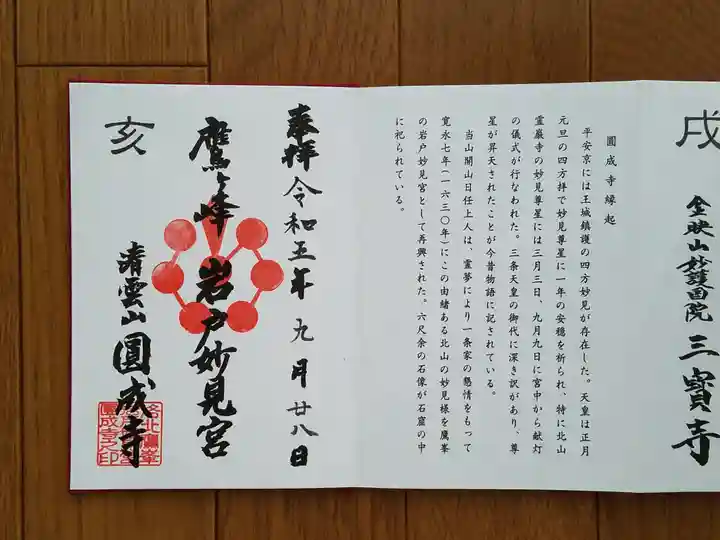 戌
金映山妙護国院
三寳寺
圓成寺縁起
平安京には王城鎮護の四方妙見が存在した。天皇は正月
元旦の四方拝で妙見尊星に一年の安穏を祈られ、特に北山
霊巌寺の妙見尊星には三月三日、九月九日に宮中から献灯
の儀式が行なわれた。三条天皇の御代に深き訳があり、尊
星が昇天されたことが今昔物語に記されている。
当山開山日任上人は、霊夢により一条家の懇情をもって
寛永七年(一六三〇年)にこの由緒ある北山の妙見様を鷹峯
の岩戸妙見宮として再興された。六尺余の石像が石窟の中
に祀られている。
奉拝 令和五年 九月廿八日
鷹ヶ峰 岩戸妙見宮
清雲山 圓成寺
亥